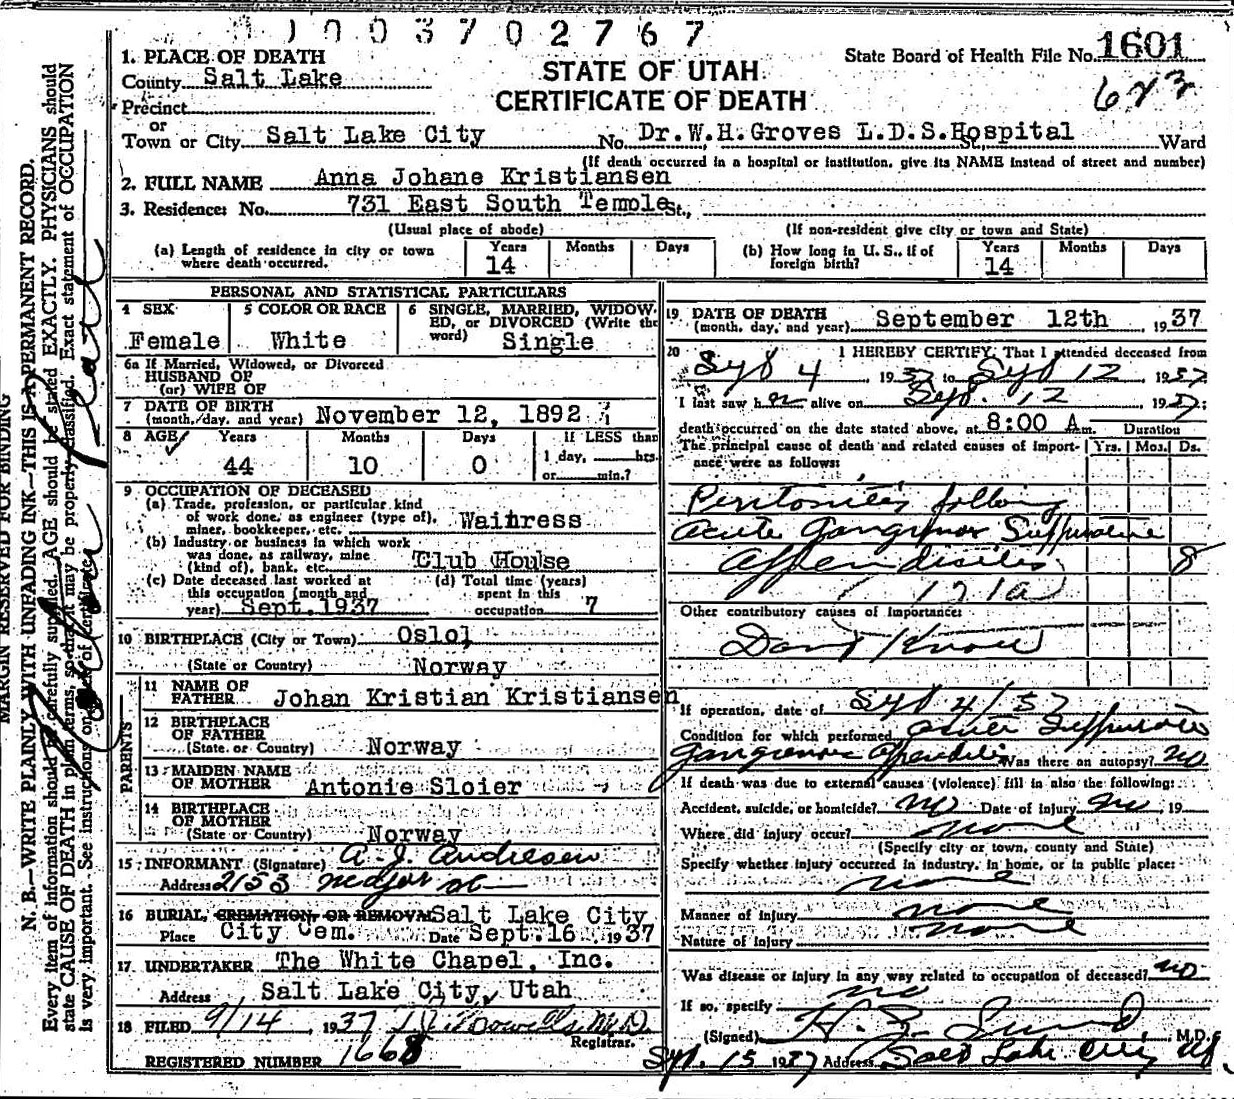 1003702767
1. PLACE OF DEATH
County Salt Lake
Precinct
or
Town or City Salt Lake City No. Dr. W. H. Groves L.D.S. Hospital St., Ward
STATE OF UTAH
CERTIFICATE OF DEATH
State Board of Health File No. 1601
(If death occurred in a hospital or institution, give its NAME instead of street and number)
2. FULL NAME Anna Johane Kristiansen
3. Residence: No. 731 East South Temple St.,
(Usual place of abode) (If non-resident give city or town and State)
(a) Length of residence in city or town where death occurred. Years 14 Months Days
(b) How long in U. S., if of foreign birth? Years 14 Months Days
PERSONAL AND STATISTICAL PARTICULARS
4 SEX Female
5 COLOR OR RACE White
6 SINGLE, MARRIED, WIDOWED, or DIVORCED (Write the word) Single
6a If Married, Widowed, or Divorced
HUSBAND OF
(or) WIFE OF
7 DATE OF BIRTH
(month, day, and year) November 12, 1892
8 AGE Years 44 Months 10 Days 0 If LESS than
1 day, hrs.
or min.?
9 OCCUPATION OF DECEASED
(a) Trade, profession, or particular kind
of work done, as engineer (type of),
miner, bookkeeper, etc. Waitress
(b) Industry or business in which work
was done, as railway, mine
(kind of), bank, etc. Club House
(c) Date deceased last worked at
this occupation (month and
year) Sept. 1937
(d) Total time (years)
spent in this
occupation 7
10 BIRTHPLACE (City or Town) Oslo,
(State or Country) Norway
PARENTS
11 NAME OF
FATHER Johan Kristian Kristiansen
12 BIRTHPLACE
OF FATHER
(State or Country) Norway
13 MAIDEN NAME
OF MOTHER Antonie Sloier
14 BIRTHPLACE
OF MOTHER
(State or Country) Norway
15 INFORMANT (Signature) A. J. Andresen
Address 2153 Major St
16 BURIAL, CREMATION, OR REMOVAL Salt Lake City
Place City Cem. Date Sept. 16 1937
17 UNDERTAKER The White Chapel, Inc.
Address Salt Lake City, Utah
18 FILED 9/14, 1937 M.D.
Registrar.
REGISTERED NUMBER 1668
19 DATE OF DEATH
(month, day, and year) September 12th 1937
20 I HEREBY CERTIFY, That I attended deceased from
Sept 4, 1937 to Sept 12, 1937
I last saw her alive on Sept. 12 1937;
death occurred on the date stated above, at 8:00 A.m. Duration
The principal cause of death and related causes of importance were as follows: Yrs. Mos. Ds.
Peritonitis following
acute Gangrenous Suppurative
Appendicitis 8
121a
Other contributory causes of importance:
Dont Know
If operation, date of Sept 4/37
Condition for which performed acute Suppurative
Gangrenous Appendicitis Was there an autopsy? no
If death was due to external causes (violence) fill in also the following:
Accident, suicide, or homicide? no Date of injury 19
Where did injury occur? none
(Specify city or town, county and State)
Specify whether injury occurred in industry, in home, or in public place:
none
Manner of injury none
Nature of injury none
Was disease or injury in any way related to occupation of deceased? no
If so, specify no
(Signed) M.D.
Sept. 15 1937 Address Salt Lake City
MARGIN RESERVED FOR BINDING
N. B.—WRITE PLAINLY WITH UNFADING INK—THIS IS A PERMANENT RECORD.
Every item of information should be carefully supplied. AGE should be stated EXACTLY. PHYSICIANS should
state CAUSE OF DEATH in plain terms, so that it may be properly classified. Exact statement of OCCUPATION
is very important. See instructions on back of certificate.